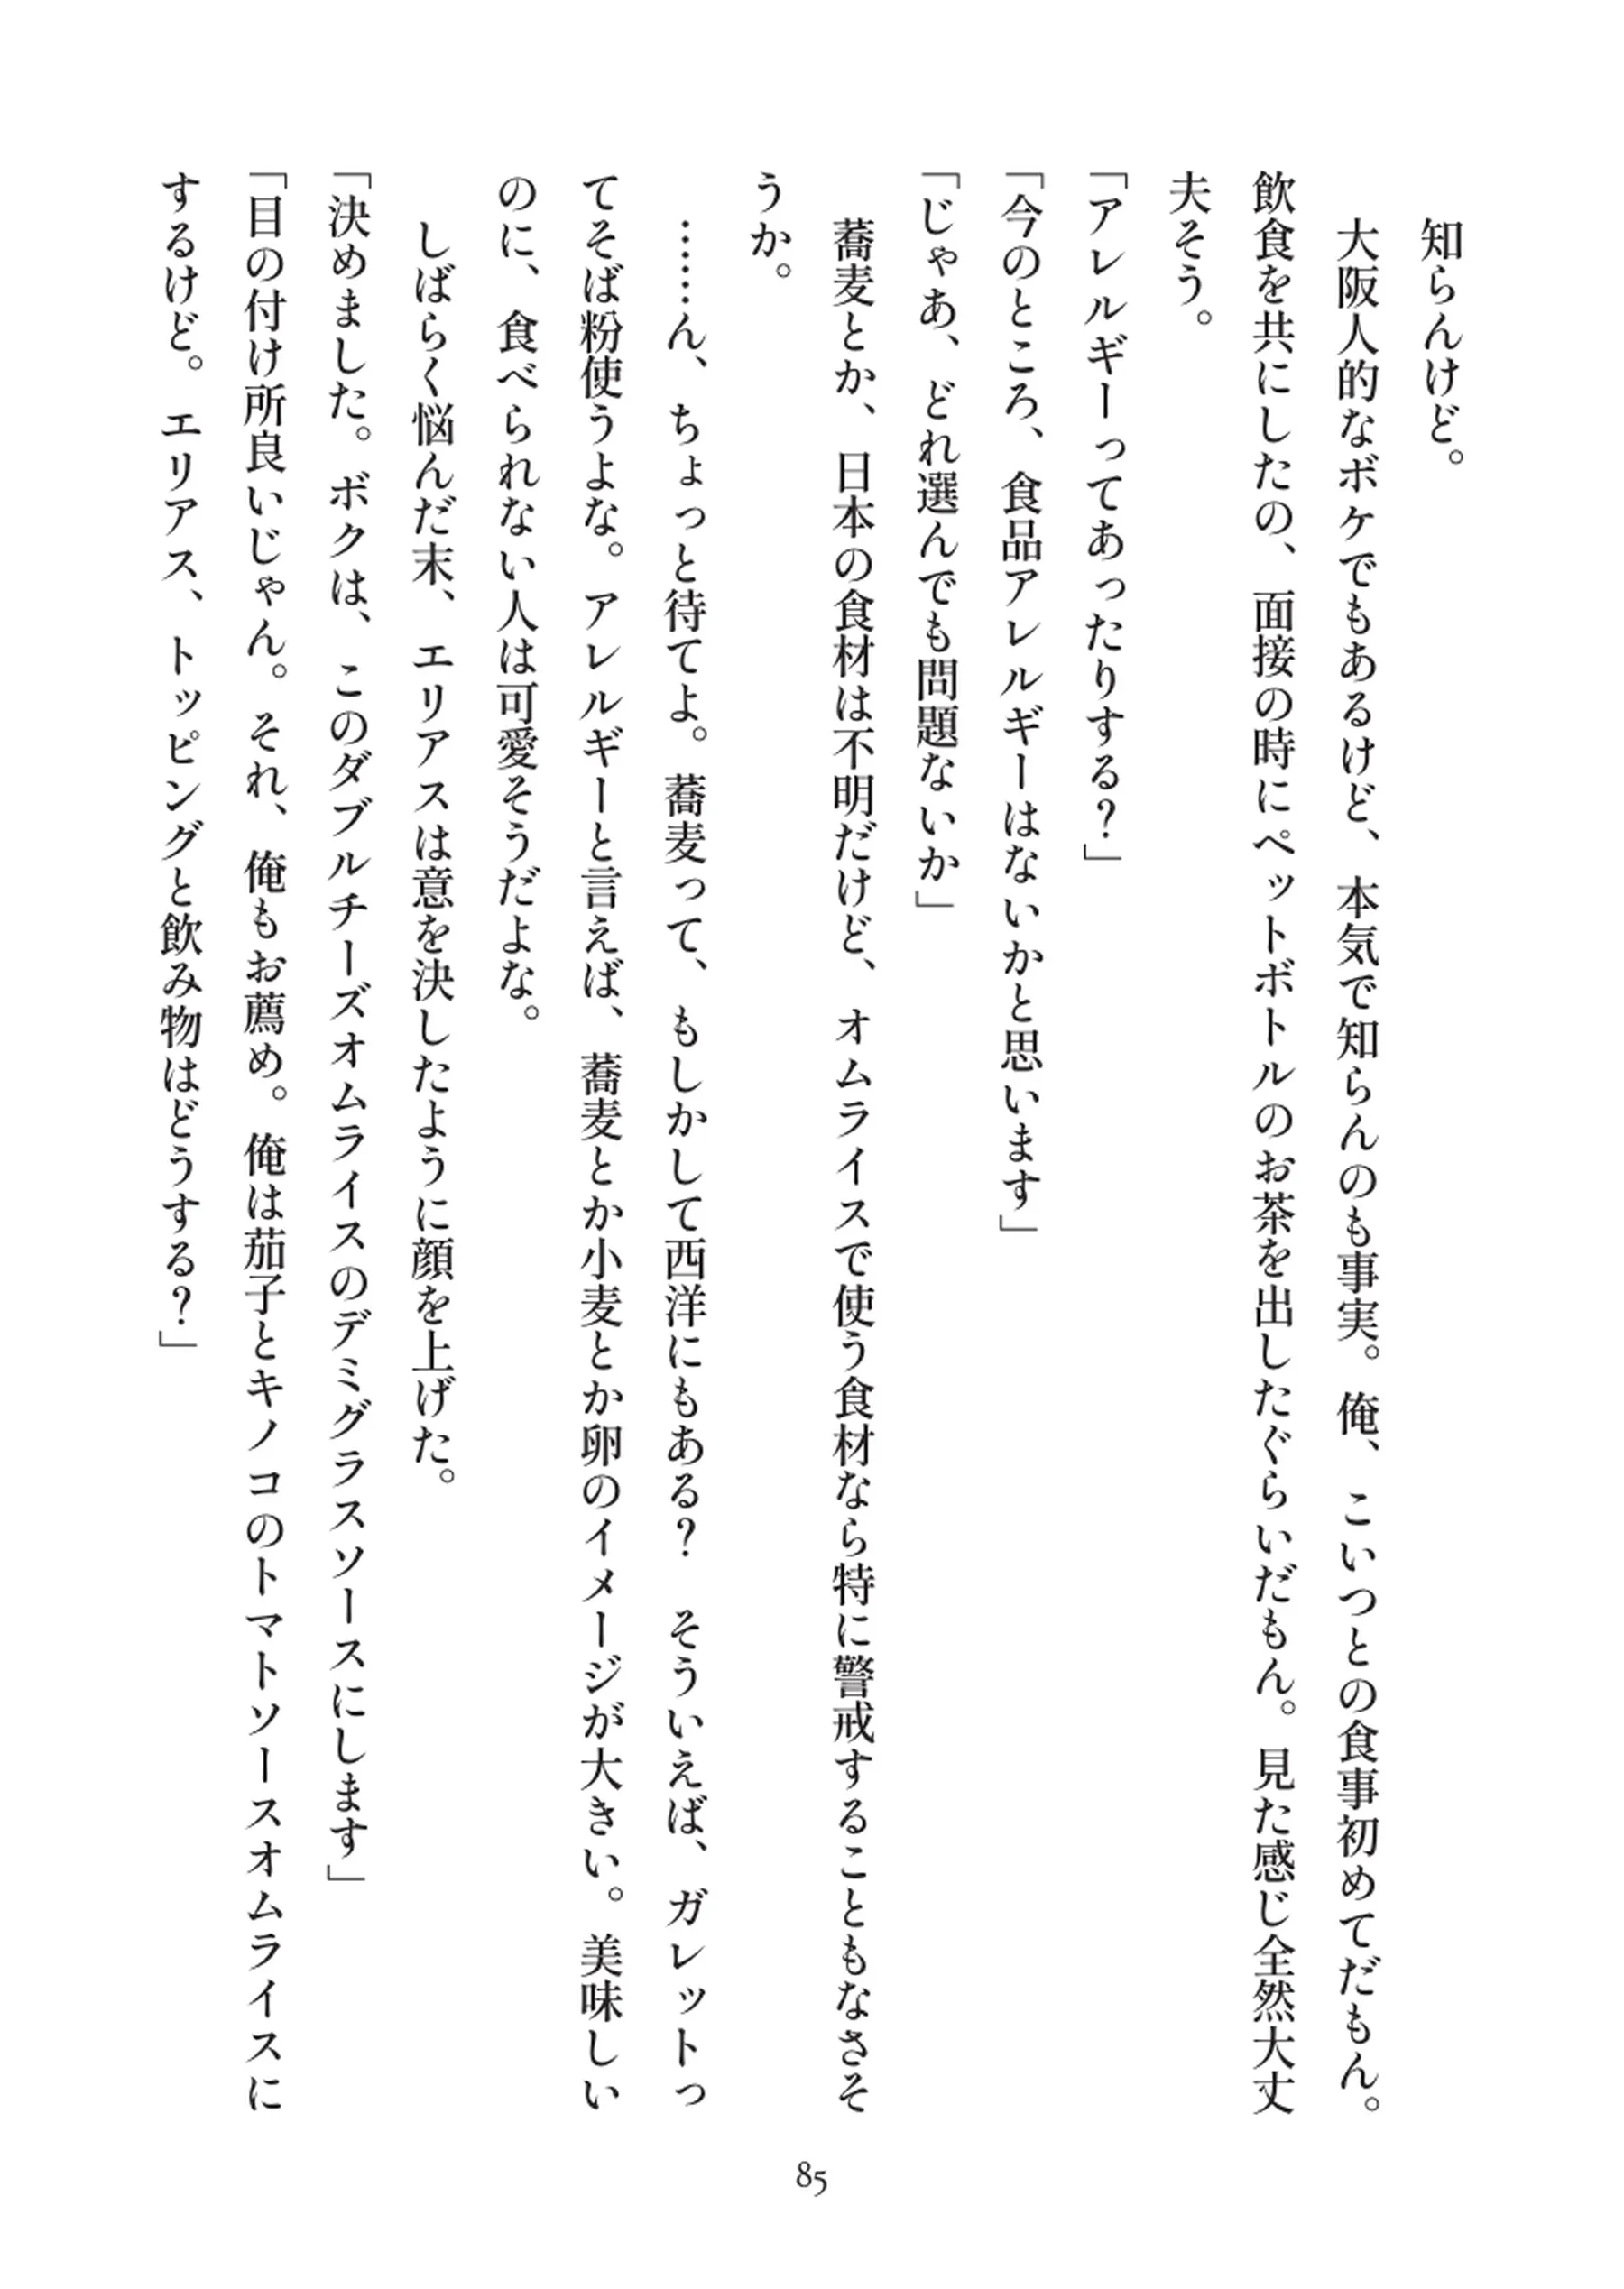 知らんけど。
　大阪人的なボケでもあるけど、本気で知らんのも事実。俺、こいつとの食事初めてだもん。
飲食を共にしたの、面接の時にペットボトルのお茶を出したぐらいだもん。見た感じ全然大丈
夫そう。
「アレルギーってあったりする？」
「今のところ、食品アレルギーはないかと思います」
「じゃあ、どれ選んでも問題ないか」
　蕎麦とか、日本の食材は不明だけど、オムライスで使う食材なら特に警戒することもなさそ
うか。
　……ん、ちょっと待てよ。蕎麦って、もしかして西洋にもある？　そういえば、ガレットっ
てそば粉使うよな。アレルギーと言えば、蕎麦とか小麦とか卵のイメージが大きい。美味しい
のに、食べられない人は可愛そうだよな。
　しばらく悩んだ末、エリアスは意を決したように顔を上げた。
「決めました。ボクは、このダブルチーズオムライスのデミグラスソースにします」
「目の付け所良いじゃん。それ、俺もお薦め。俺は茄子とキノコのトマトソースオムライスに
するけど。エリアス、トッピングと飲み物はどうする？」
85